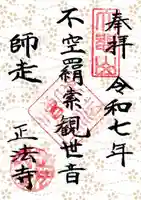 奉拝 令和七年
不空羂索観世音
師走
正法寺